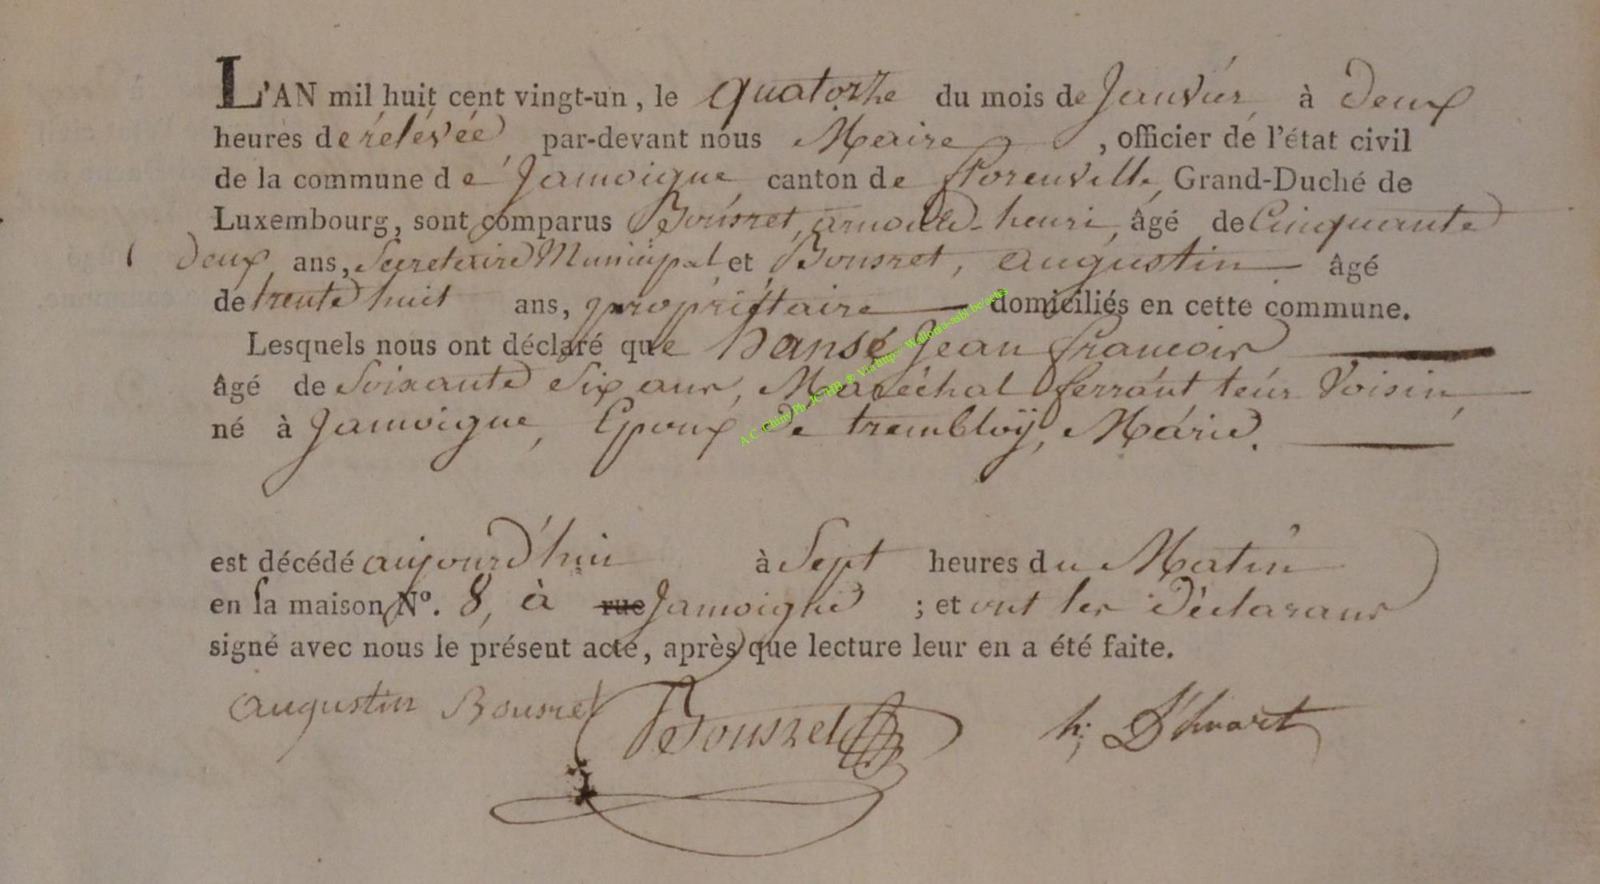 L'AN mil huit cent vingt-un, le quatorze du mois de Janvier à deux
heures de rélévée par-devant nous Maire, officier de l'état civil
de la commune de Jamoigne canton de florenville, Grand-Duché de
Luxembourg, sont comparus Bousret, arnould-henri, âgé de Cinquante
deux ans, Secretaire Municipal et Bousret, augustin âgé
de trente huit ans, propriétaire domiciliés en cette commune.
Lesquels nous ont déclaré que hansé Jean francois
âgé de Soixante Six ans, Maréchal ferrant leur Voisin,
né à Jamoigne, Epoux de trembloÿ, Marie.
est décédé aujourd'hui à Sept heures du Matin
en sa maison N°. 8, à rue Jamoigne ; et ont les déclarans
signé avec nous le présent acte, après que lecture leur en a été faite.
augustin Bousret Bousret h: D'huart